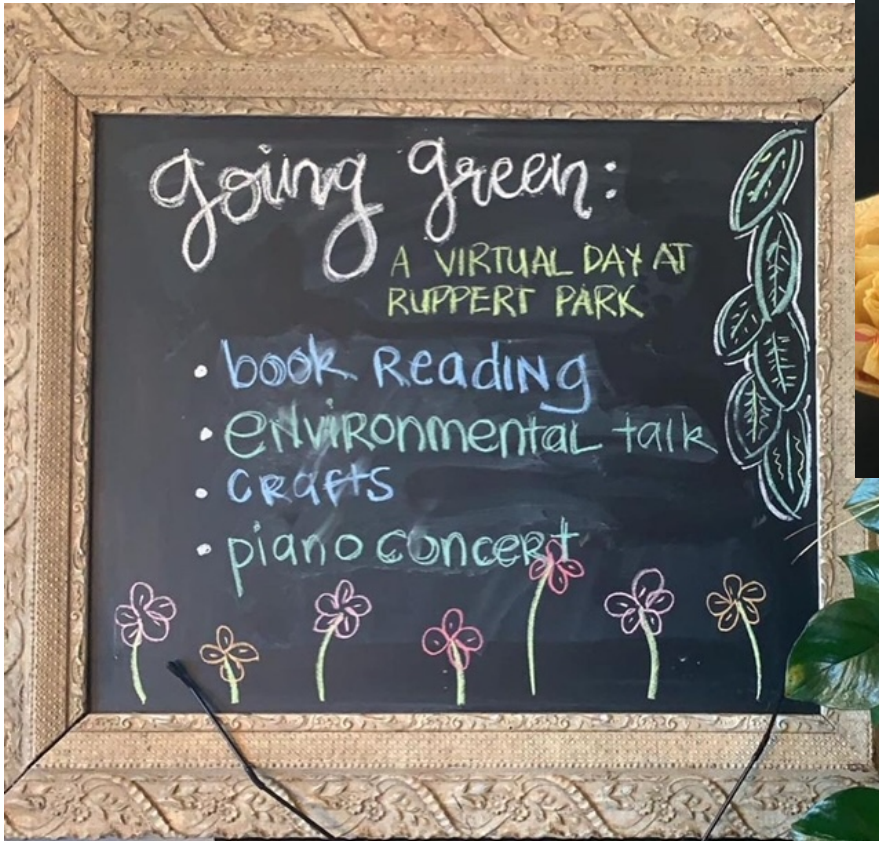 going green:
A VIRTUAL DAY AT
RUPPERT PARK
• book Reading
• environmental talk
• crafts
• piano concert